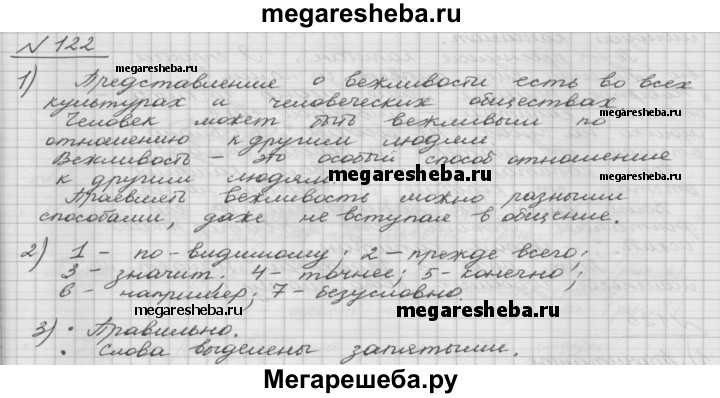 megaresheba.ru
N 122
megaresheba.ru
1) Представление о вежливости есть во всех
культурах и человеческих обществах.
Человек может быть вежливым по
отношению к другим людям.
Вежливость - это особый способ отношение
к другим людям.
megaresheba.ru
Проявлять вежливость можно разными
способами, даже не вступая в общение.
2) 1 - по-видимому; 2 - прежде всего;
3 - значит. 4 - точнее; 5 - конечно;
6 - например; 7 - безусловно.
megaresheba.ru
megaresheba.ru
3) • Правильно.
• Слова выделены запятыми.
Мегарешеба.ру